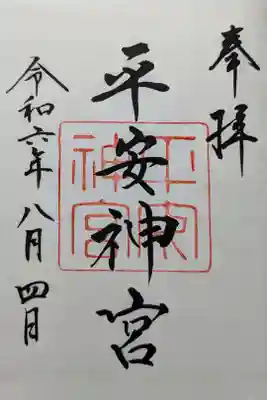 奉拝
平安神宮
令和六年八月四日
平安神宮